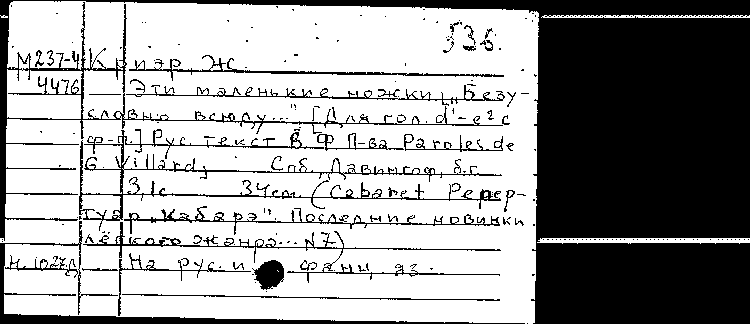 536.
М237-4 Криэр, Ж.
4476 Эти маленькие ножки. „Безу-
словно всюду..." [Для гол. d'-e² с
ф-п.] Рус. текст В. Ф П-ва Paroles de
G. Villard, Спб., Давингоф, б.г.
3, 1с. 34см. (Cabaret Репер-
туар „Кабарэ". Последние новинки
лёгкого жанра... N7)
Н. 1027д На рус. и франц. яз.